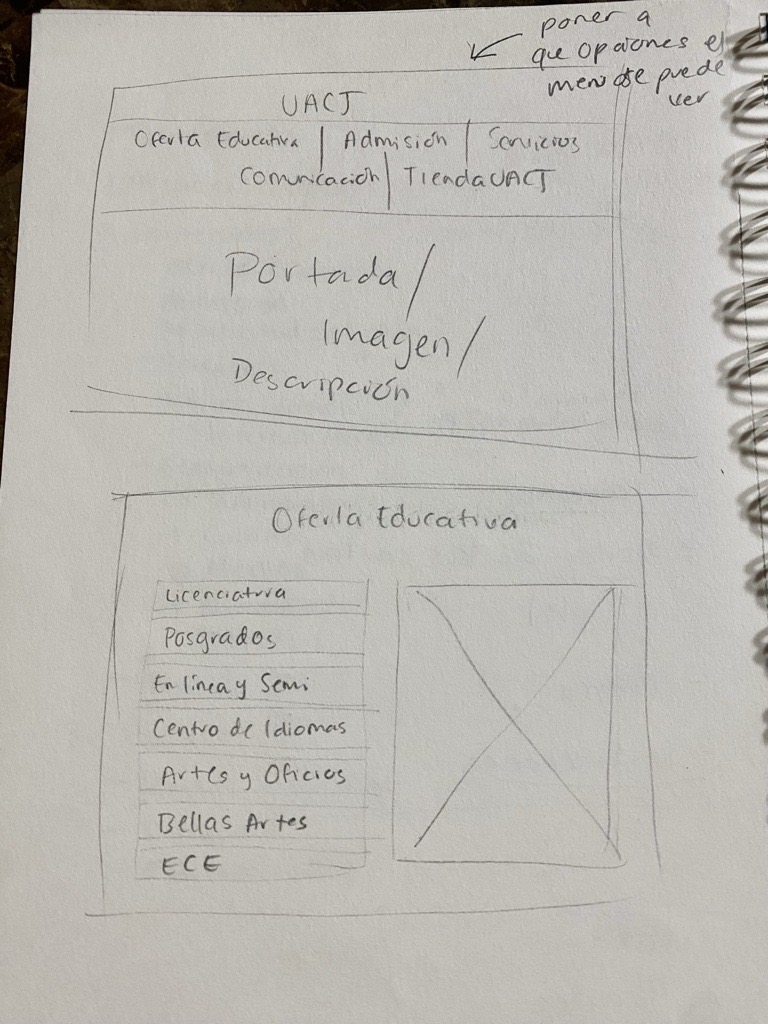 poner a
que opciones el
menu se puede
ver
UACJ
Oferta Educativa | Admisión | Servicios
Comunicación | Tienda UACJ
Portada /
Imagen /
Descripción
Oferta Educativa
Licenciatura
Posgrados
En línea y Semi
Centro de Idiomas
Artes y Oficios
Bellas Artes
ECE